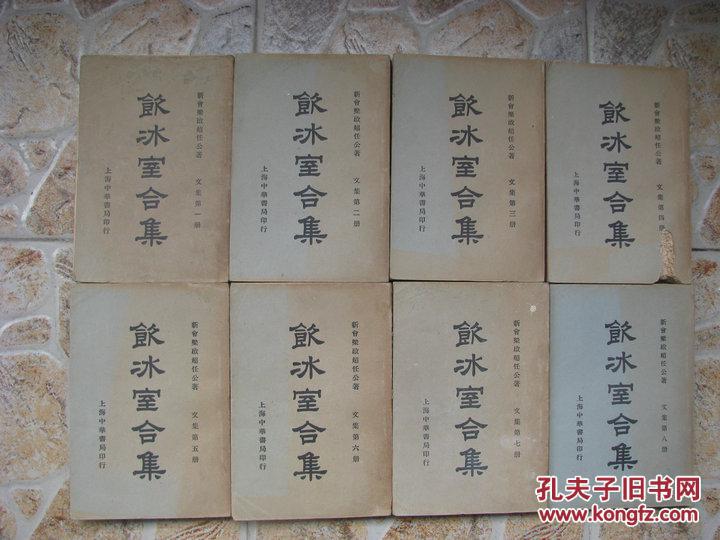 新會梁啟超任公著
文集第一册
飲冰室合集
上海中華書局印行
新會梁啟超任公著
文集第二册
飲冰室合集
上海中華書局印行
新會梁啟超任公著
文集第三册
飲冰室合集
上海中華書局印行
新會梁啟超任公著
文集第四册
飲冰室合集
上海中華書局印行
新會梁啟超任公著
文集第五册
飲冰室合集
上海中華書局印行
新會梁啟超任公著
文集第六册
飲冰室合集
上海中華書局印行
新會梁啟超任公著
文集第七册
飲冰室合集
上海中華書局印行
新會梁啟超任公著
文集第八册
飲冰室合集
上海中華書局印行
孔夫子旧书网
www.kongfz.com